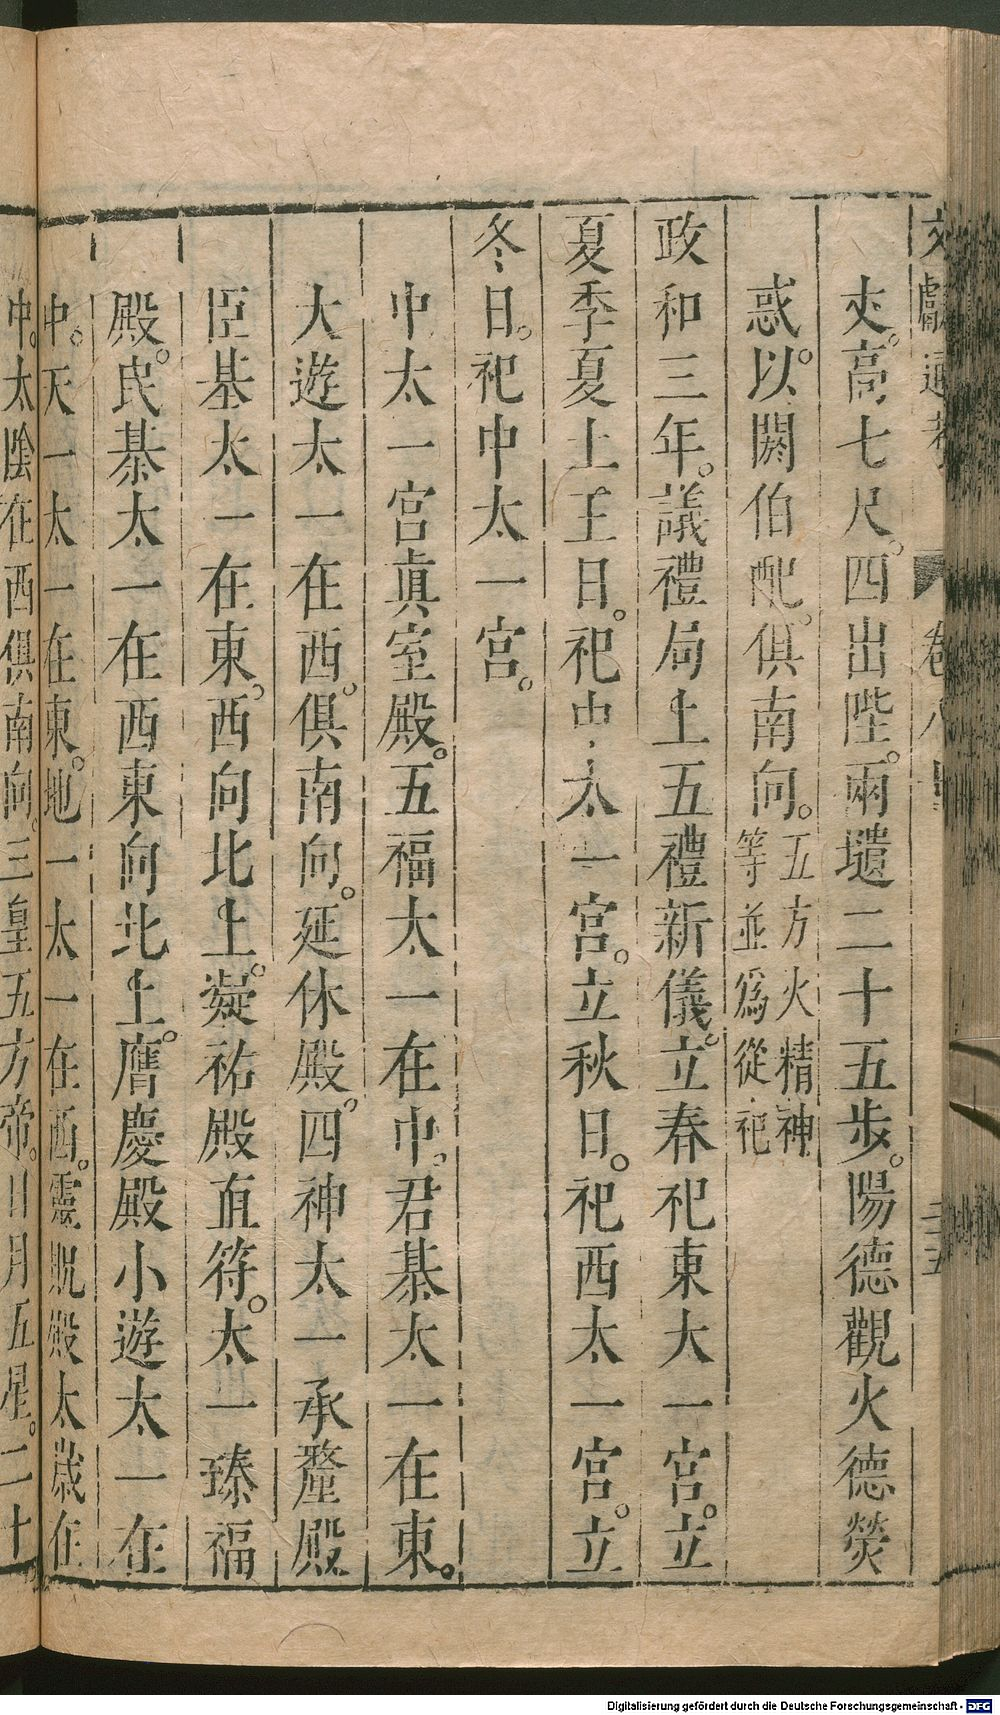 文獻通考 卷八十
丈。高七尺。四出陛。兩壝二十五步。陽德觀火德熒
惑。以閼伯配。俱南向。五方火精神等並爲從祀
政和三年。議禮局上五禮新儀。立春祀東太一宮。立
夏季夏土王日。祀中太一宮。立秋日。祀西太一宮。立
冬日。祀中太一宮。
中太一宮眞室殿。五福太一在中。君綦太一在東。
大遊太一在西。俱南向。延休殿。四神太一承釐殿
臣綦太一在東。西向北上。凝祐殿直符。太一臻福
殿。民綦太一在西東向北上。膺慶殿小遊太一在
中。天一太一在東。地一太一在西。靈貺殿太歲在
中。太陰在西俱南向。三皇五方帝。日月五星。二十
Digitalisierung gefördert durch die Deutsche Forschungsgemeinschaft - DFG